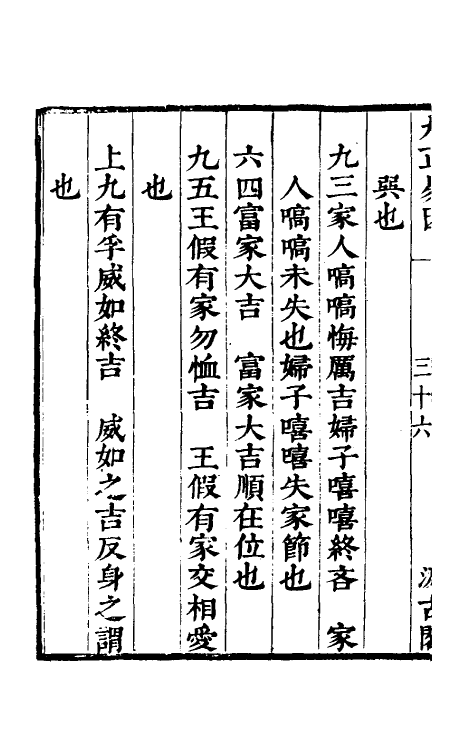 三十六
巽也
九三家人嗃嗃悔厲吉婦子嘻嘻終吝　家
人嗃嗃未失也婦子嘻嘻失家節也
六四富家大吉　富家大吉順在位也
九五王假有家勿恤吉　王假有家交相愛
也
上九有孚威如終吉　威如之吉反身之謂
也